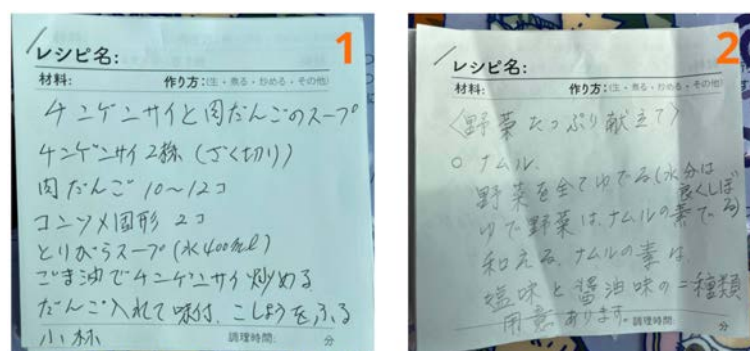 1
レシピ名:
材料: 作り方:(生・煮る・炒める・その他)
チンゲンサイと肉だんごのスープ
チンゲンサイ2株(ざく切り)
肉だんご 10〜12コ
コンソメ固形 2コ
とりがらスープ(水400ml)
ごま油でチンゲンサイ炒める
だんご入れて味付、こしょうをふる
小林
調理時間: 分
2
レシピ名:
材料: 作り方:(生・煮る・炒める・その他)
〈野菜たっぷり献立て〉
○ ナムル.
野菜を全てゆでる(水分は
良くしぼる)
ゆで野菜は、ナムルの素で
和える。ナムルの素は、
塩味と醤油味の二種類
用意あります。
調理時間: 分